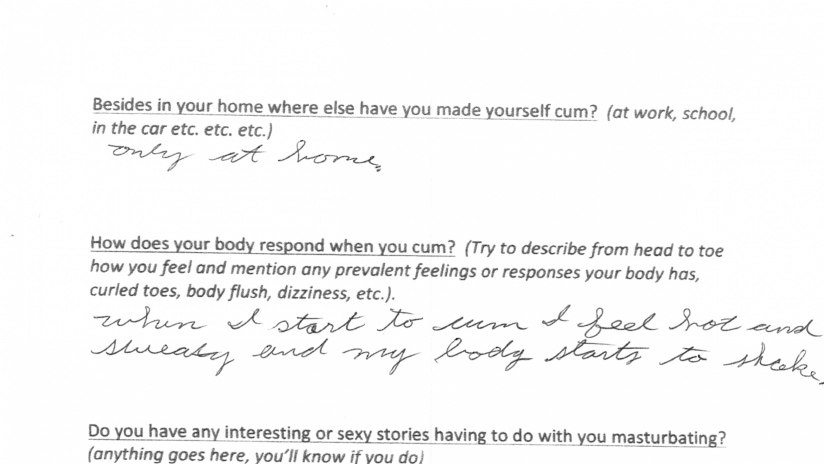 Besides in your home where else have you made yourself cum? (at work, school,
in the car etc. etc. etc.)
only at home.
How does your body respond when you cum? (Try to describe from head to toe
how you feel and mention any prevalent feelings or responses your body has,
curled toes, body flush, dizziness, etc.).
when I start to cum I feel hot and
sweaty and my body starts to shake.
Do you have any interesting or sexy stories having to do with you masturbating?
(anything goes here, you'll know if you do)